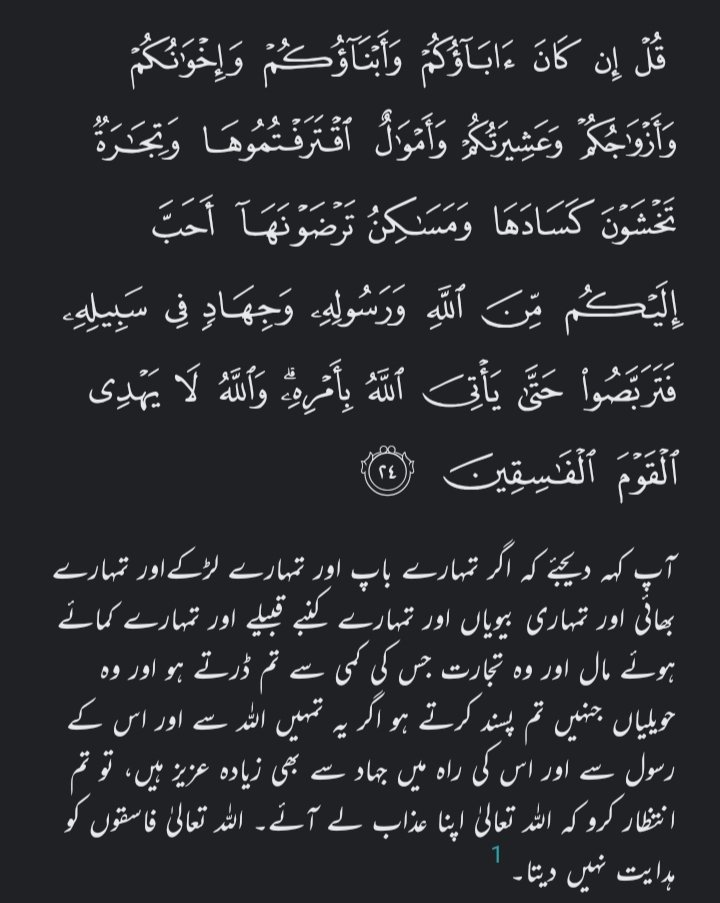 قُلْ إِن كَانَ ءَابَآؤُكُمْ وَأَبْنَآؤُكُمْ وَإِخْوَٰنُكُمْ
وَأَزْوَٰجُكُمْ وَعَشِيرَتُكُمْ وَأَمْوَٰلٌ ٱقْتَرَفْتُمُوهَا وَتِجَٰرَةٌ
تَخْشَوْنَ كَسَادَهَا وَمَسَٰكِنُ تَرْضَوْنَهَآ أَحَبَّ
إِلَيْكُم مِّنَ ٱللَّهِ وَرَسُولِهِۦ وَجِهَادٍ فِى سَبِيلِهِۦ
فَتَرَبَّصُوا۟ حَتَّىٰ يَأْتِىَ ٱللَّهُ بِأَمْرِهِۦۗ وَٱللَّهُ لَا يَهْدِى
ٱلْقَوْمَ ٱلْفَٰسِقِينَ ٢٤
آپ کہہ دیجئے کہ اگر تمہارے باپ اور تمہارے لڑکےاور تمہارے
بھائی اور تمہاری بیویاں اور تمہارے کنبے قبیلے اور تمہارے کمائے
ہوئے مال اور وہ تجارت جس کی کمی سے تم ڈرتے ہو اور وه
حویلیاں جنہیں تم پسند کرتے ہو اگر یہ تمہیں اللہ سے اور اس کے
رسول سے اور اس کی راه میں جہاد سے بھی زیاده عزیز ہیں، تو تم
انتظار کرو کہ اللہ تعالیٰ اپنا عذاب لے آئے۔ اللہ تعالیٰ فاسقوں کو
ہدایت نہیں دیتا۔ 1